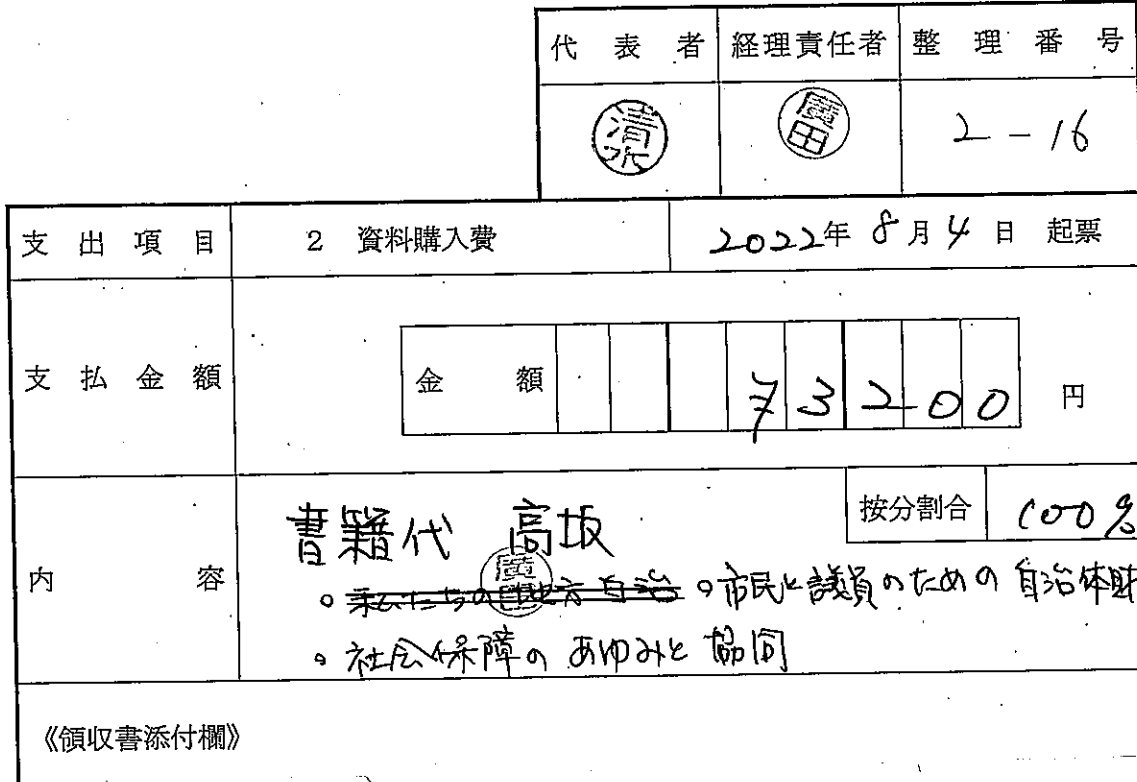 代表者 経理責任者 整理番号
清水 廣田 2-16
支出項目 2 資料購入費 2022年 8月 4日 起票
支払金額 金額 ¥3200 円
内容 書籍代 高坂 按分割合 100%
廣田
。私たちの地方自治 。市民と議員のための自治体財
。社会保障のあゆみと協同
《領収書添付欄》